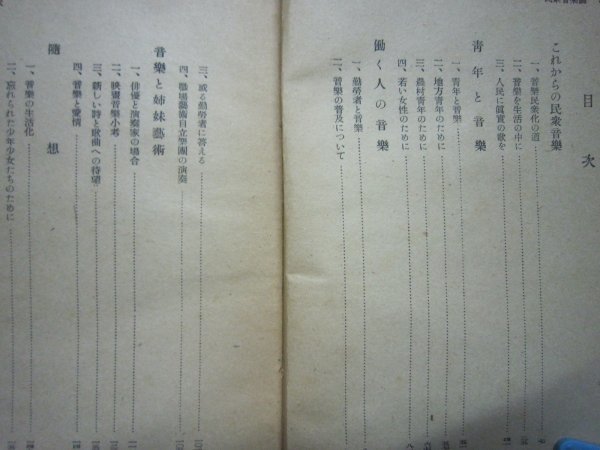 目次
これからの民衆音樂
一、音樂民衆化の道
二、音樂を生活の中に
三、人民に眞實の歌を
靑年と音樂
一、靑年と音樂
二、地方靑年のために
三、農村靑年のために
四、若い女性のために
働く人の音樂
一、勤勞者と音樂
二、音樂の普及について
三、或る勤勞者に答える
四、職場藝術自立樂團の演奏
音樂と姉妹藝術
一、俳優と演奏家の場合
二、映畫音樂小考
三、新しい詩と歌曲への待望
四、音樂と愛情
隨想
一、音樂の生活化
二、忘れられた少年少女たちのために